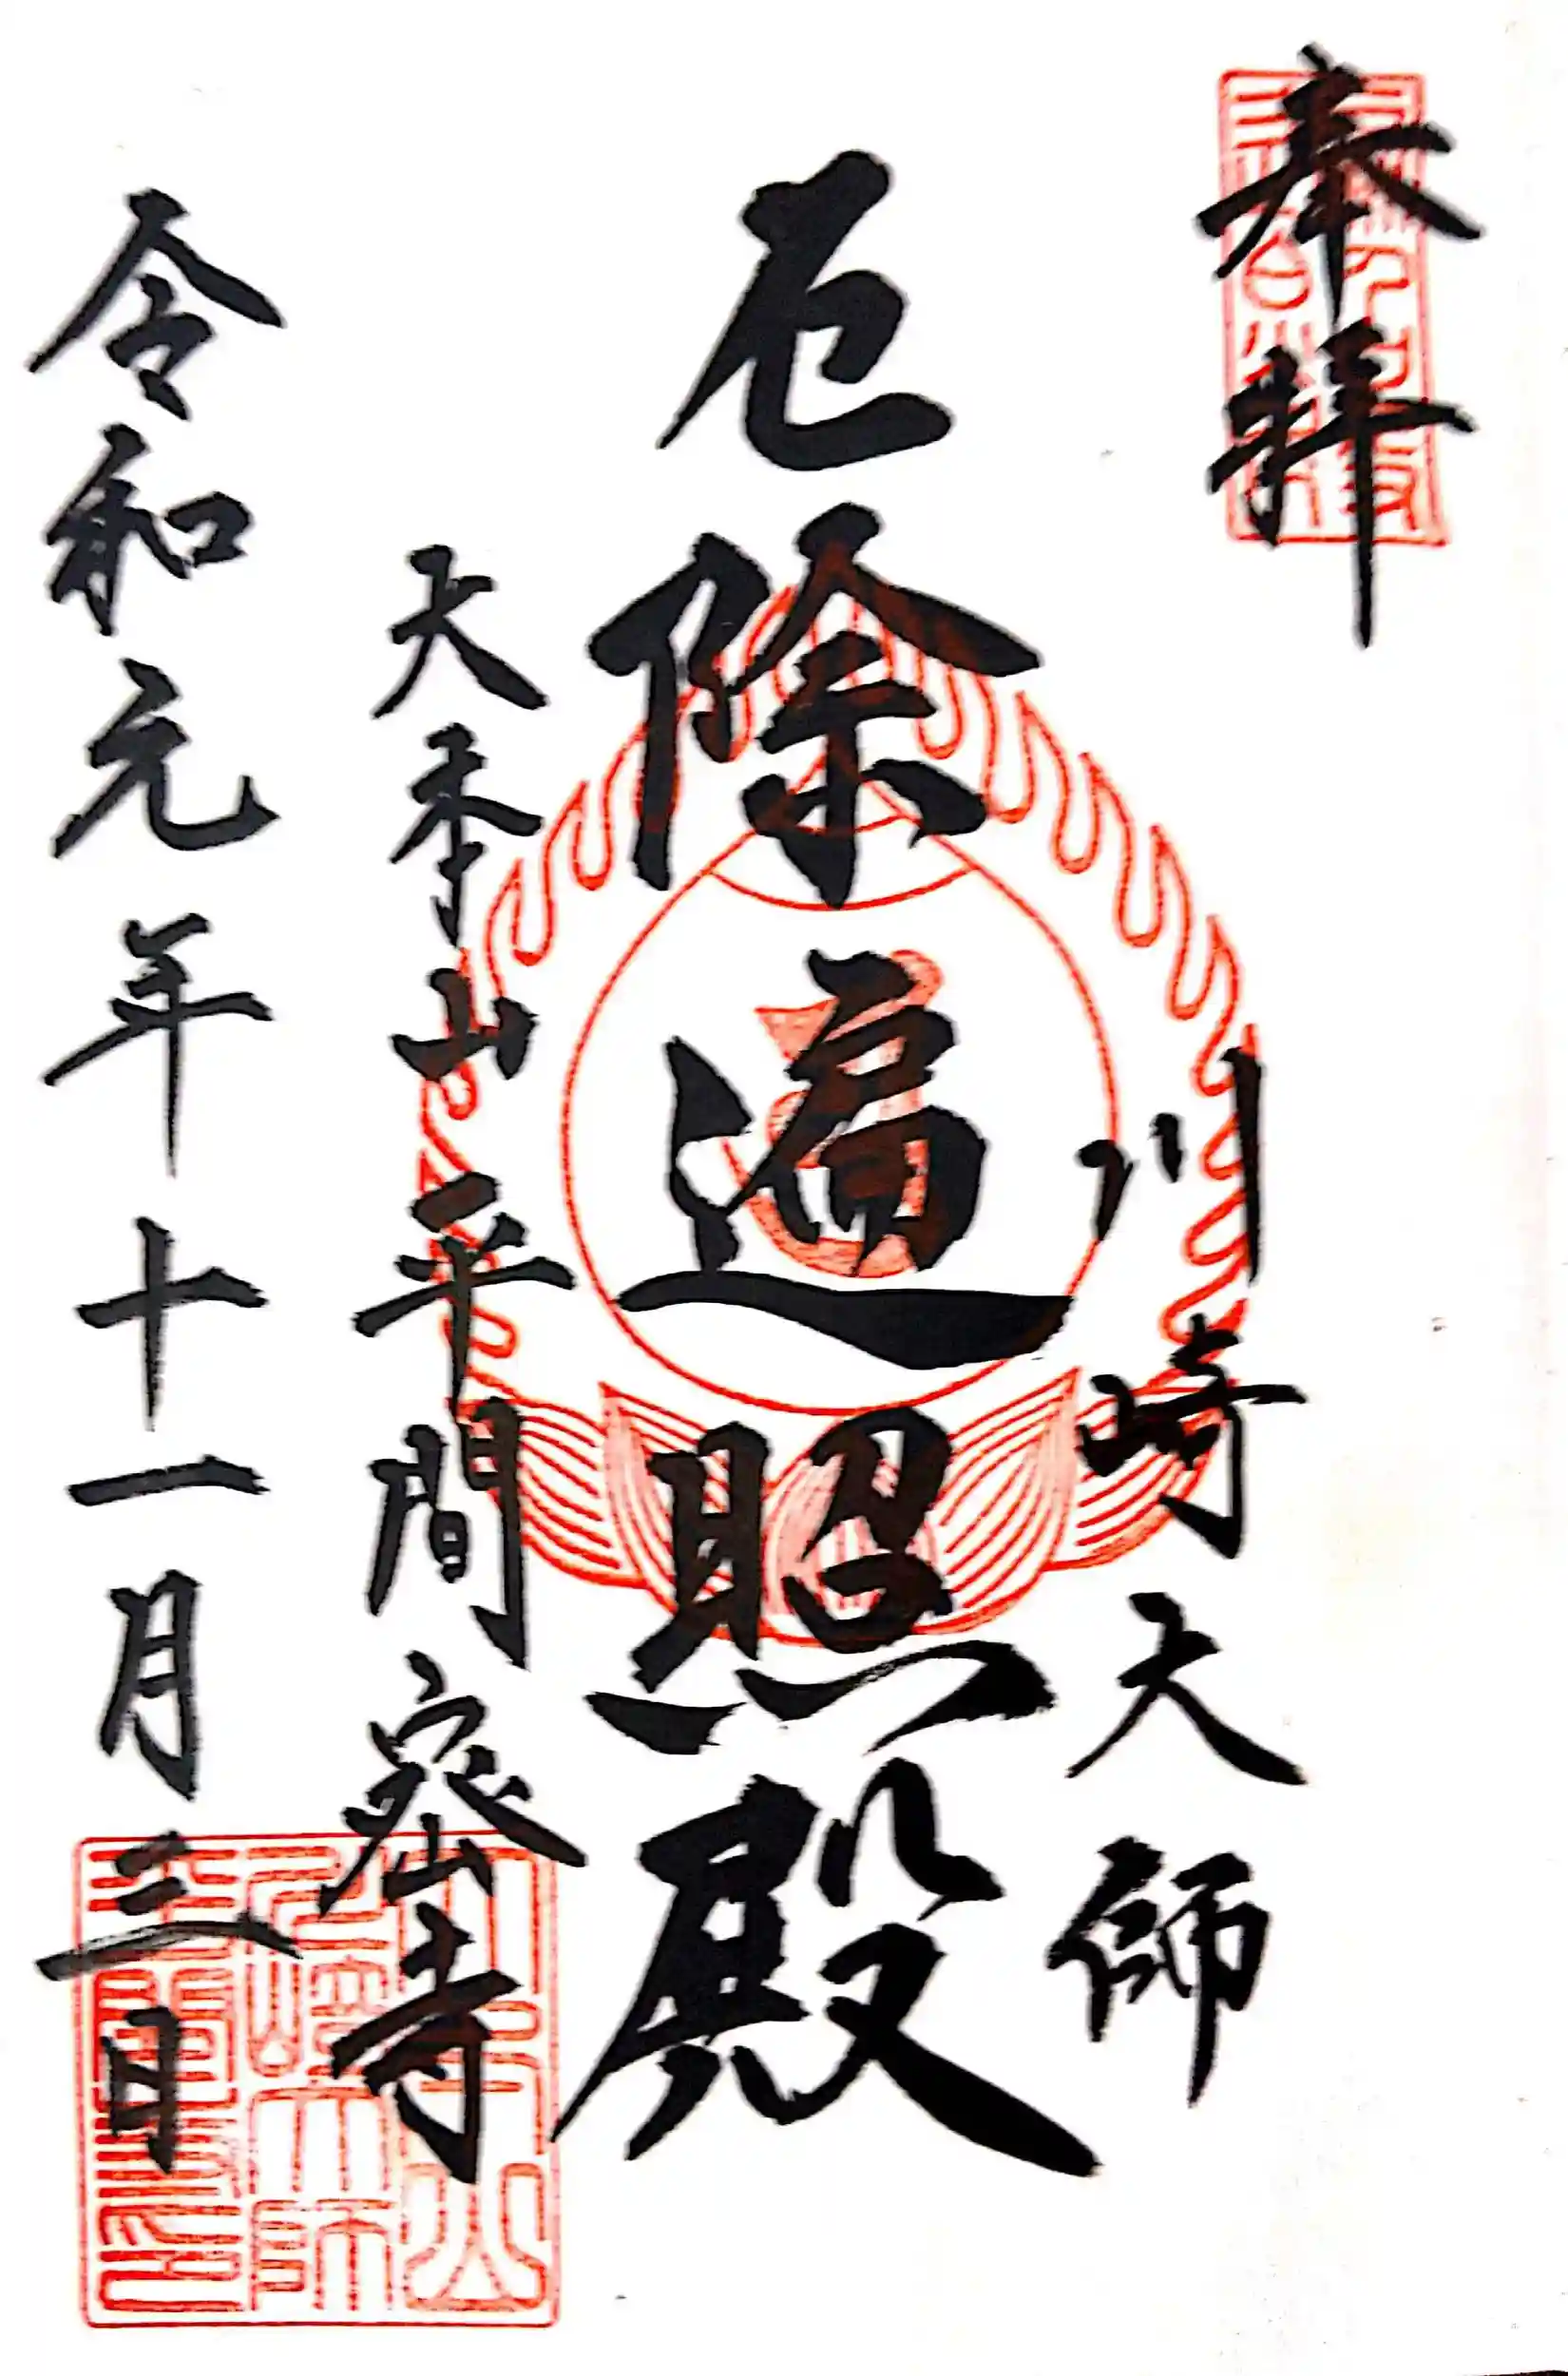 奉拝
川崎大師
厄除遍照殿
大本山平間密寺
令和元年十一月三日